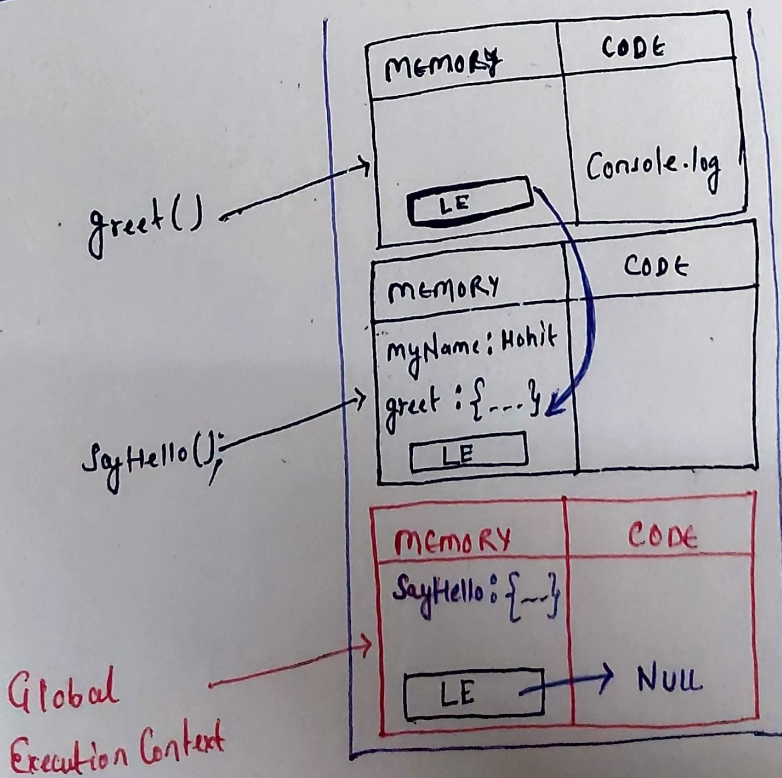 MEMORY CODE
Console.log
LE
greet()
MEMORY CODE
myName: Mohit
greet : {---}
LE
SayHello();
MEMORY CODE
SayHello: {---}
LE NULL
Global
Execution Context